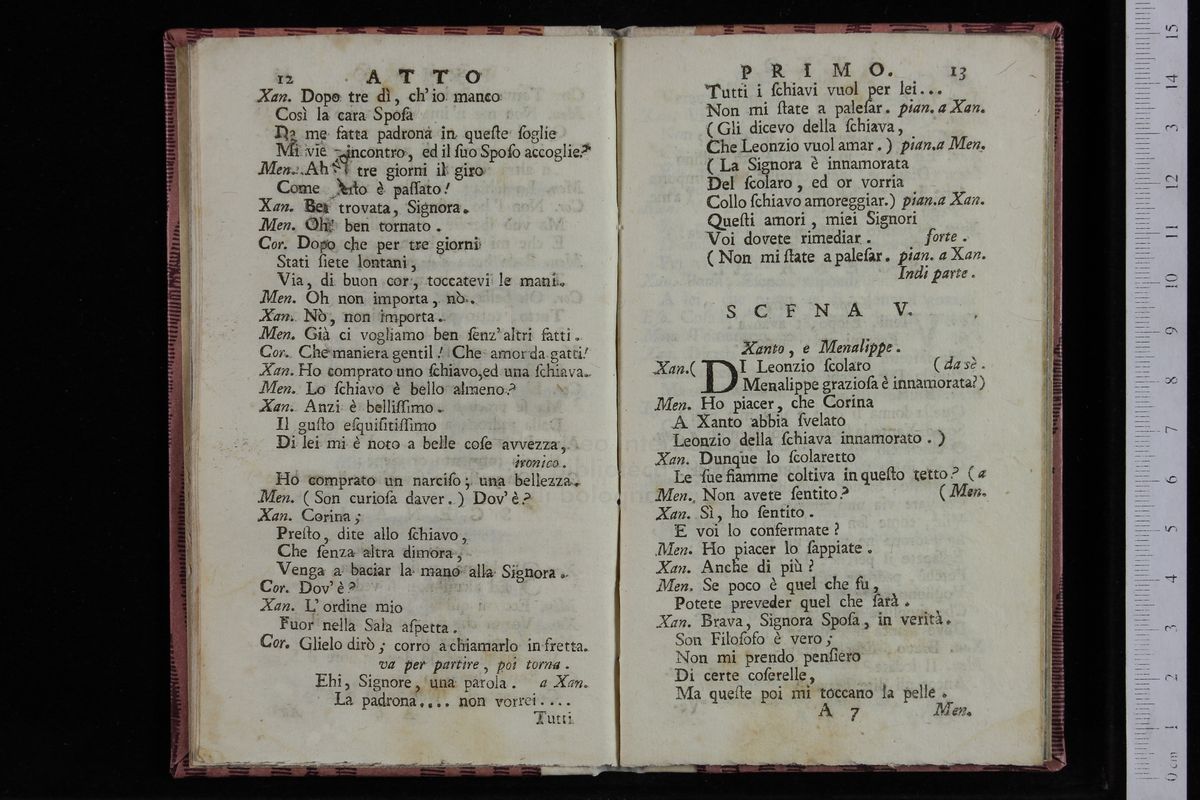 12 ATTO
Xan. Dopo tre dì, ch'io manco
Così la cara Sposa
Da me fatta padrona in queste soglie
Mi vie incontro, ed il suo Sposo accoglie?
Men. Ah tre giorni il giro
Come è passato!
Xan. Ben trovata, Signora.
Men. Oh! ben tornato.
Cor. Dopo che per tre giorni
Stati siete lontani,
Via, di buon cor, toccatevi le mani.
Men. Oh non importa, nò.
Xan. Nò, non importa.
Men. Già ci vogliamo ben senz'altri fatti.
Cor. Che maniera gentil! Che amor da gatti!
Xan. Ho comprato uno schiavo, ed una schiava.
Men. Lo schiavo è bello almeno?
Xan. Anzi è bellissimo.
Il gusto esquisitissimo
Di lei mi è noto a belle cose avvezza,
ironico.
Ho comprato un narciso; una bellezza.
Men. (Son curiosa daver.) Dov'è?
Xan. Corina;
Presto, dite allo schiavo,
Che senza altra dimora,
Venga a baciar la mano alla Signora.
Cor. Dov'è?
Xan. L'ordine mio
Fuor nella Sala aspetta.
Cor. Glielo dirò; corro a chiamarlo in fretta.
va per partire, poi torna.
Ehi, Signore, una parola. a Xan.
La padrona.... non vorrei....
Tutti
PRIMO. 13
Tutti i schiavi vuol per lei...
Non mi state a palesar. pian. a Xan.
(Gli dicevo della schiava,
Che Leonzio vuol amar.) pian. a Men.
(La Signora è innamorata
Del scolaro, ed or vorria
Collo schiavo amoreggiar.) pian. a Xan.
Questi amori, miei Signori
Voi dovete rimediar. forte.
(Non mi state a palesar. pian. a Xan.
Indi parte.
SCENA V.
Xanto, e Menalippe.
Xan. (DI Leonzio scolaro (da sè.
Menalippe graziosa è innamorata?)
Men. Ho piacer, che Corina
A Xanto abbia svelato
Leonzio della schiava innamorato.)
Xan. Dunque lo scolaretto
Le sue fiamme coltiva in questo tetto? (a
Men. Non avete sentito? (Men.
Xan. Sì, ho sentito.
E voi lo confermate?
Men. Ho piacer lo sappiate.
Xan. Anche di più?
Men. Se poco è quel che fu,
Potete preveder quel che sarà.
Xan. Brava, Signora Sposa, in verità.
Son Filosofo è vero;
Non mi prendo pensiero
Di certe coserelle,
Ma queste poi mi toccano la pelle.
A 7 Men.
15
14
13
12
11
10
9
8
7
6
5
4
3
2
1
0 cm